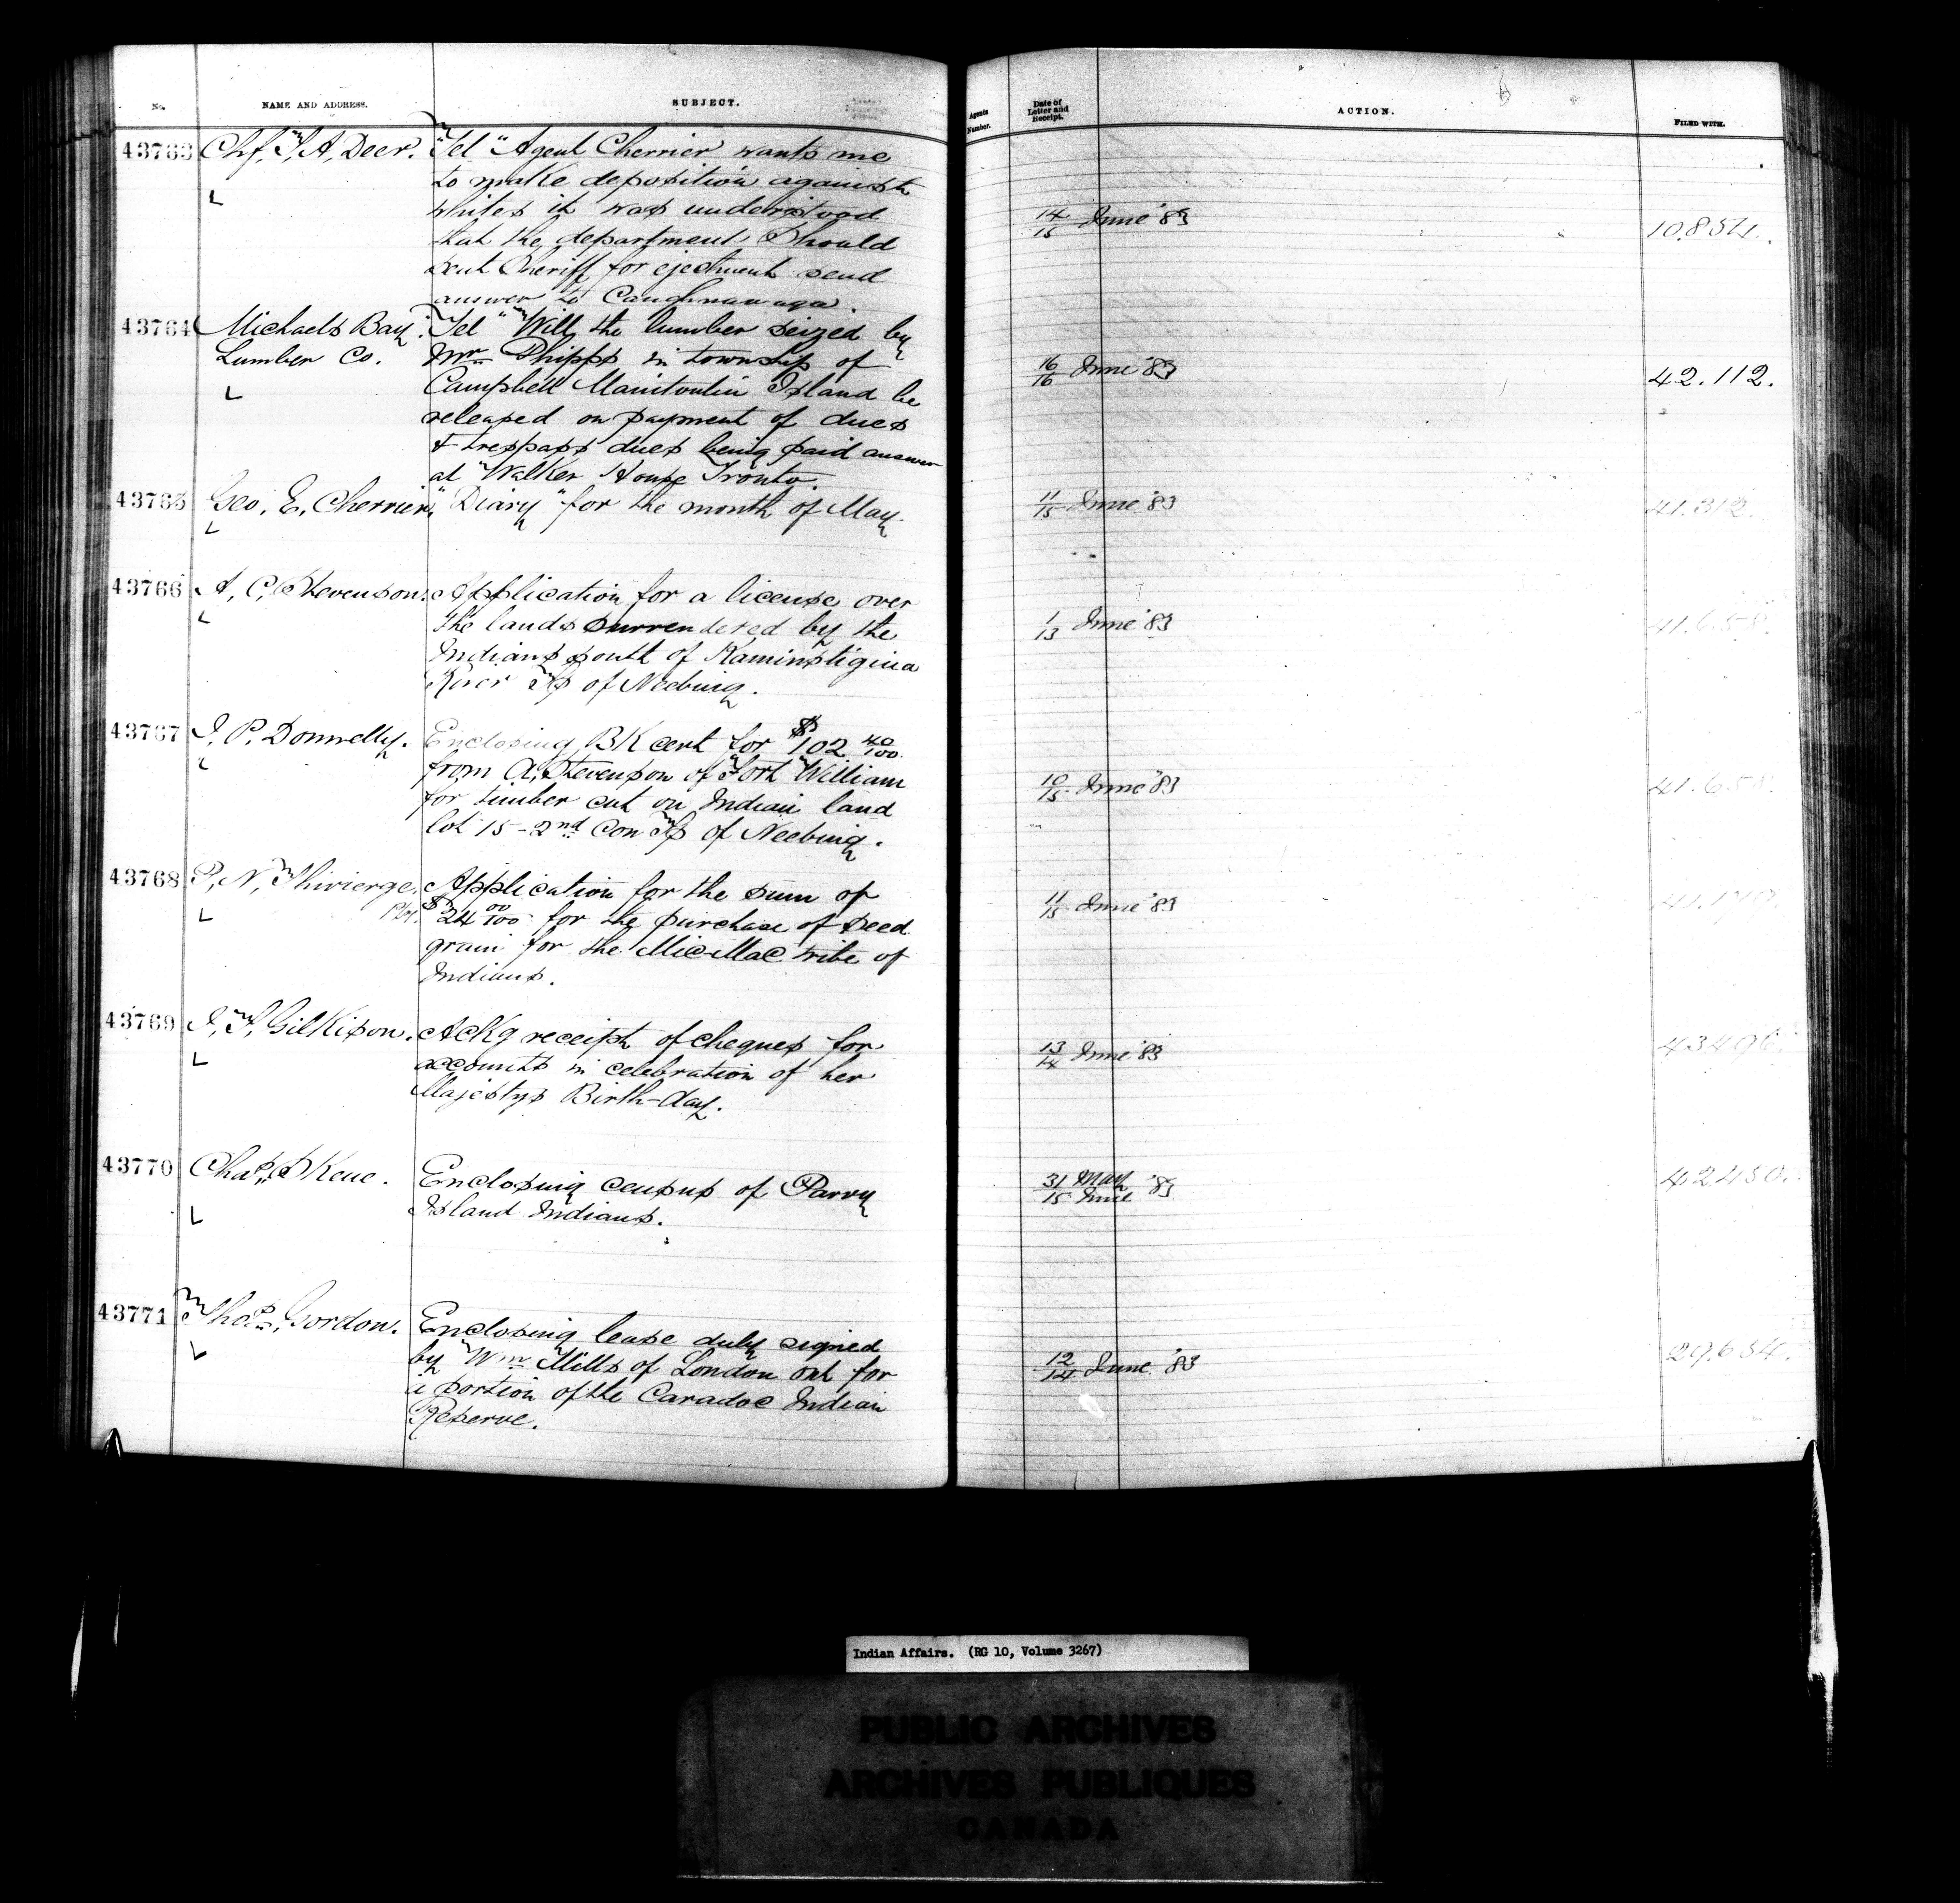 No. NAME AND ADDRESS. SUBJECT. Agents Number. Date of Letter and Receipt. ACTION. FILED WITH.
43763 Chf. T. A. Deer. "Tel" Agent Cherrier wants me
to make deposition against
whites it was understood
that the department Should
sent Sheriff for ejectment send
answer to Caughnawaga.
14/15 June '83 10.854.
43764 Michaels Bay "Tel" Will the lumber seized by
Lumber Co. Mr Phipps in township of
Campbell Manitoulin Island be
released on payment of dues
& trespass dues being paid answer
at Walker House Tronto.
16/16 June '83 42.112.
43765 Geo. E. Cherrier. "Diary" for the month of May.
11/15 June '83 41.312.
43766 A. C. Stevenson. Application for a license over
the lands surrendered by the
Indians south of Kaministigina
River Tp of Neebing.
1/13 June '83 41.658.
43767 J. P. Donnelly. Enclosing BK cert for $102 40/100
from A. Stevenson of Fort William
for timber cut on Indian land
lot 15 - 2nd Con Tp of Neebing.
10/15 June '83 41.658.
43768 P. N. Thivierge. Application for the sum of
$24 00/100 for the purchase of seed
grain for the Mic-Mac tribe of
Indians.
11/15 June '83
43769 J. T. Gilkison. Ackg receipt of cheques for
accounts in celebration of her
Majestys Birth-day.
13/14 June '83
43770 Chas. Skene. Enclosing census of Parry
Island Indians.
31 May / 15 June '83 42450.
43771 Thos. Gordon. Enclosing lease duly signed
by Wm Mills of London ont for
a portion of the Caradoc Indian
Reserve.
12/14 June '83 29.634.
Indian Affairs. (RG 10, Volume 3267)
PUBLIC ARCHIVES
ARCHIVES PUBLIQUES
CANADA